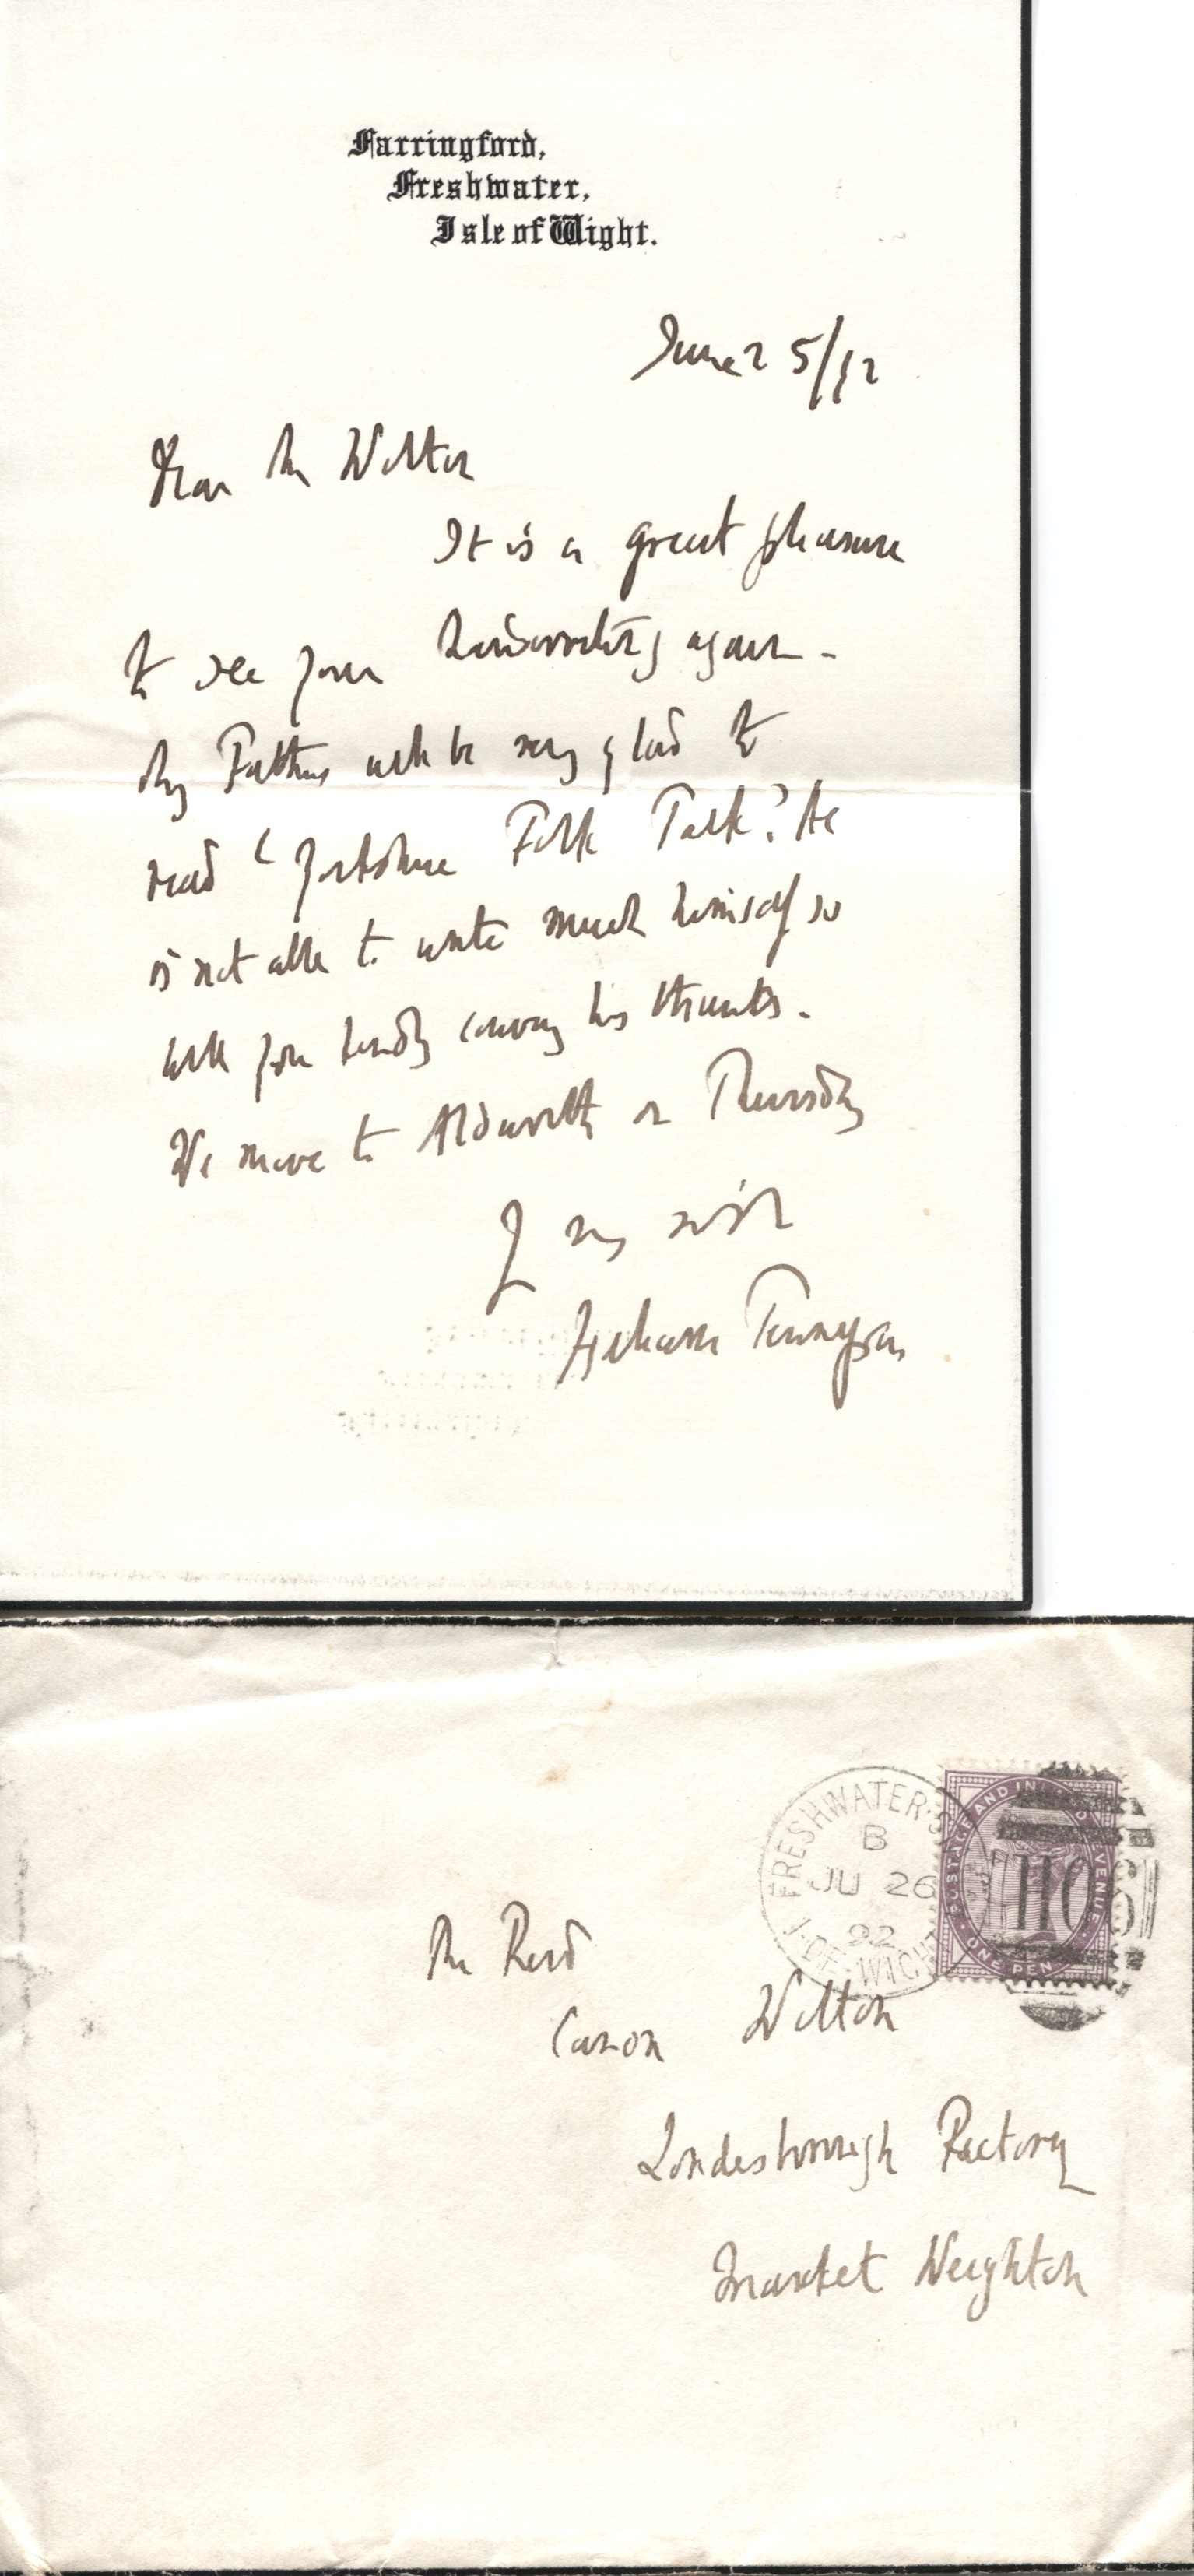 Farringford,
Freshwater,
Isle of Wight.
June 25/92
Dear Mr Wilton
It is a great pleasure
to see your handwriting again -
My Father will be very glad to
read 'Yorkshire Folk Talk'. He
is not able to write much himself so
will you kindly convey his thanks.
We move to Aldworth on Thursday
Hallam Tennyson
FRESHWATER·S
B
JU 26
92
I·OF·WIGHT
POSTAGE AND INLAND REVENUE
ONE PENNY
H06
The Revd
Canon Wilton
Londesborough Rectory
Market Weighton